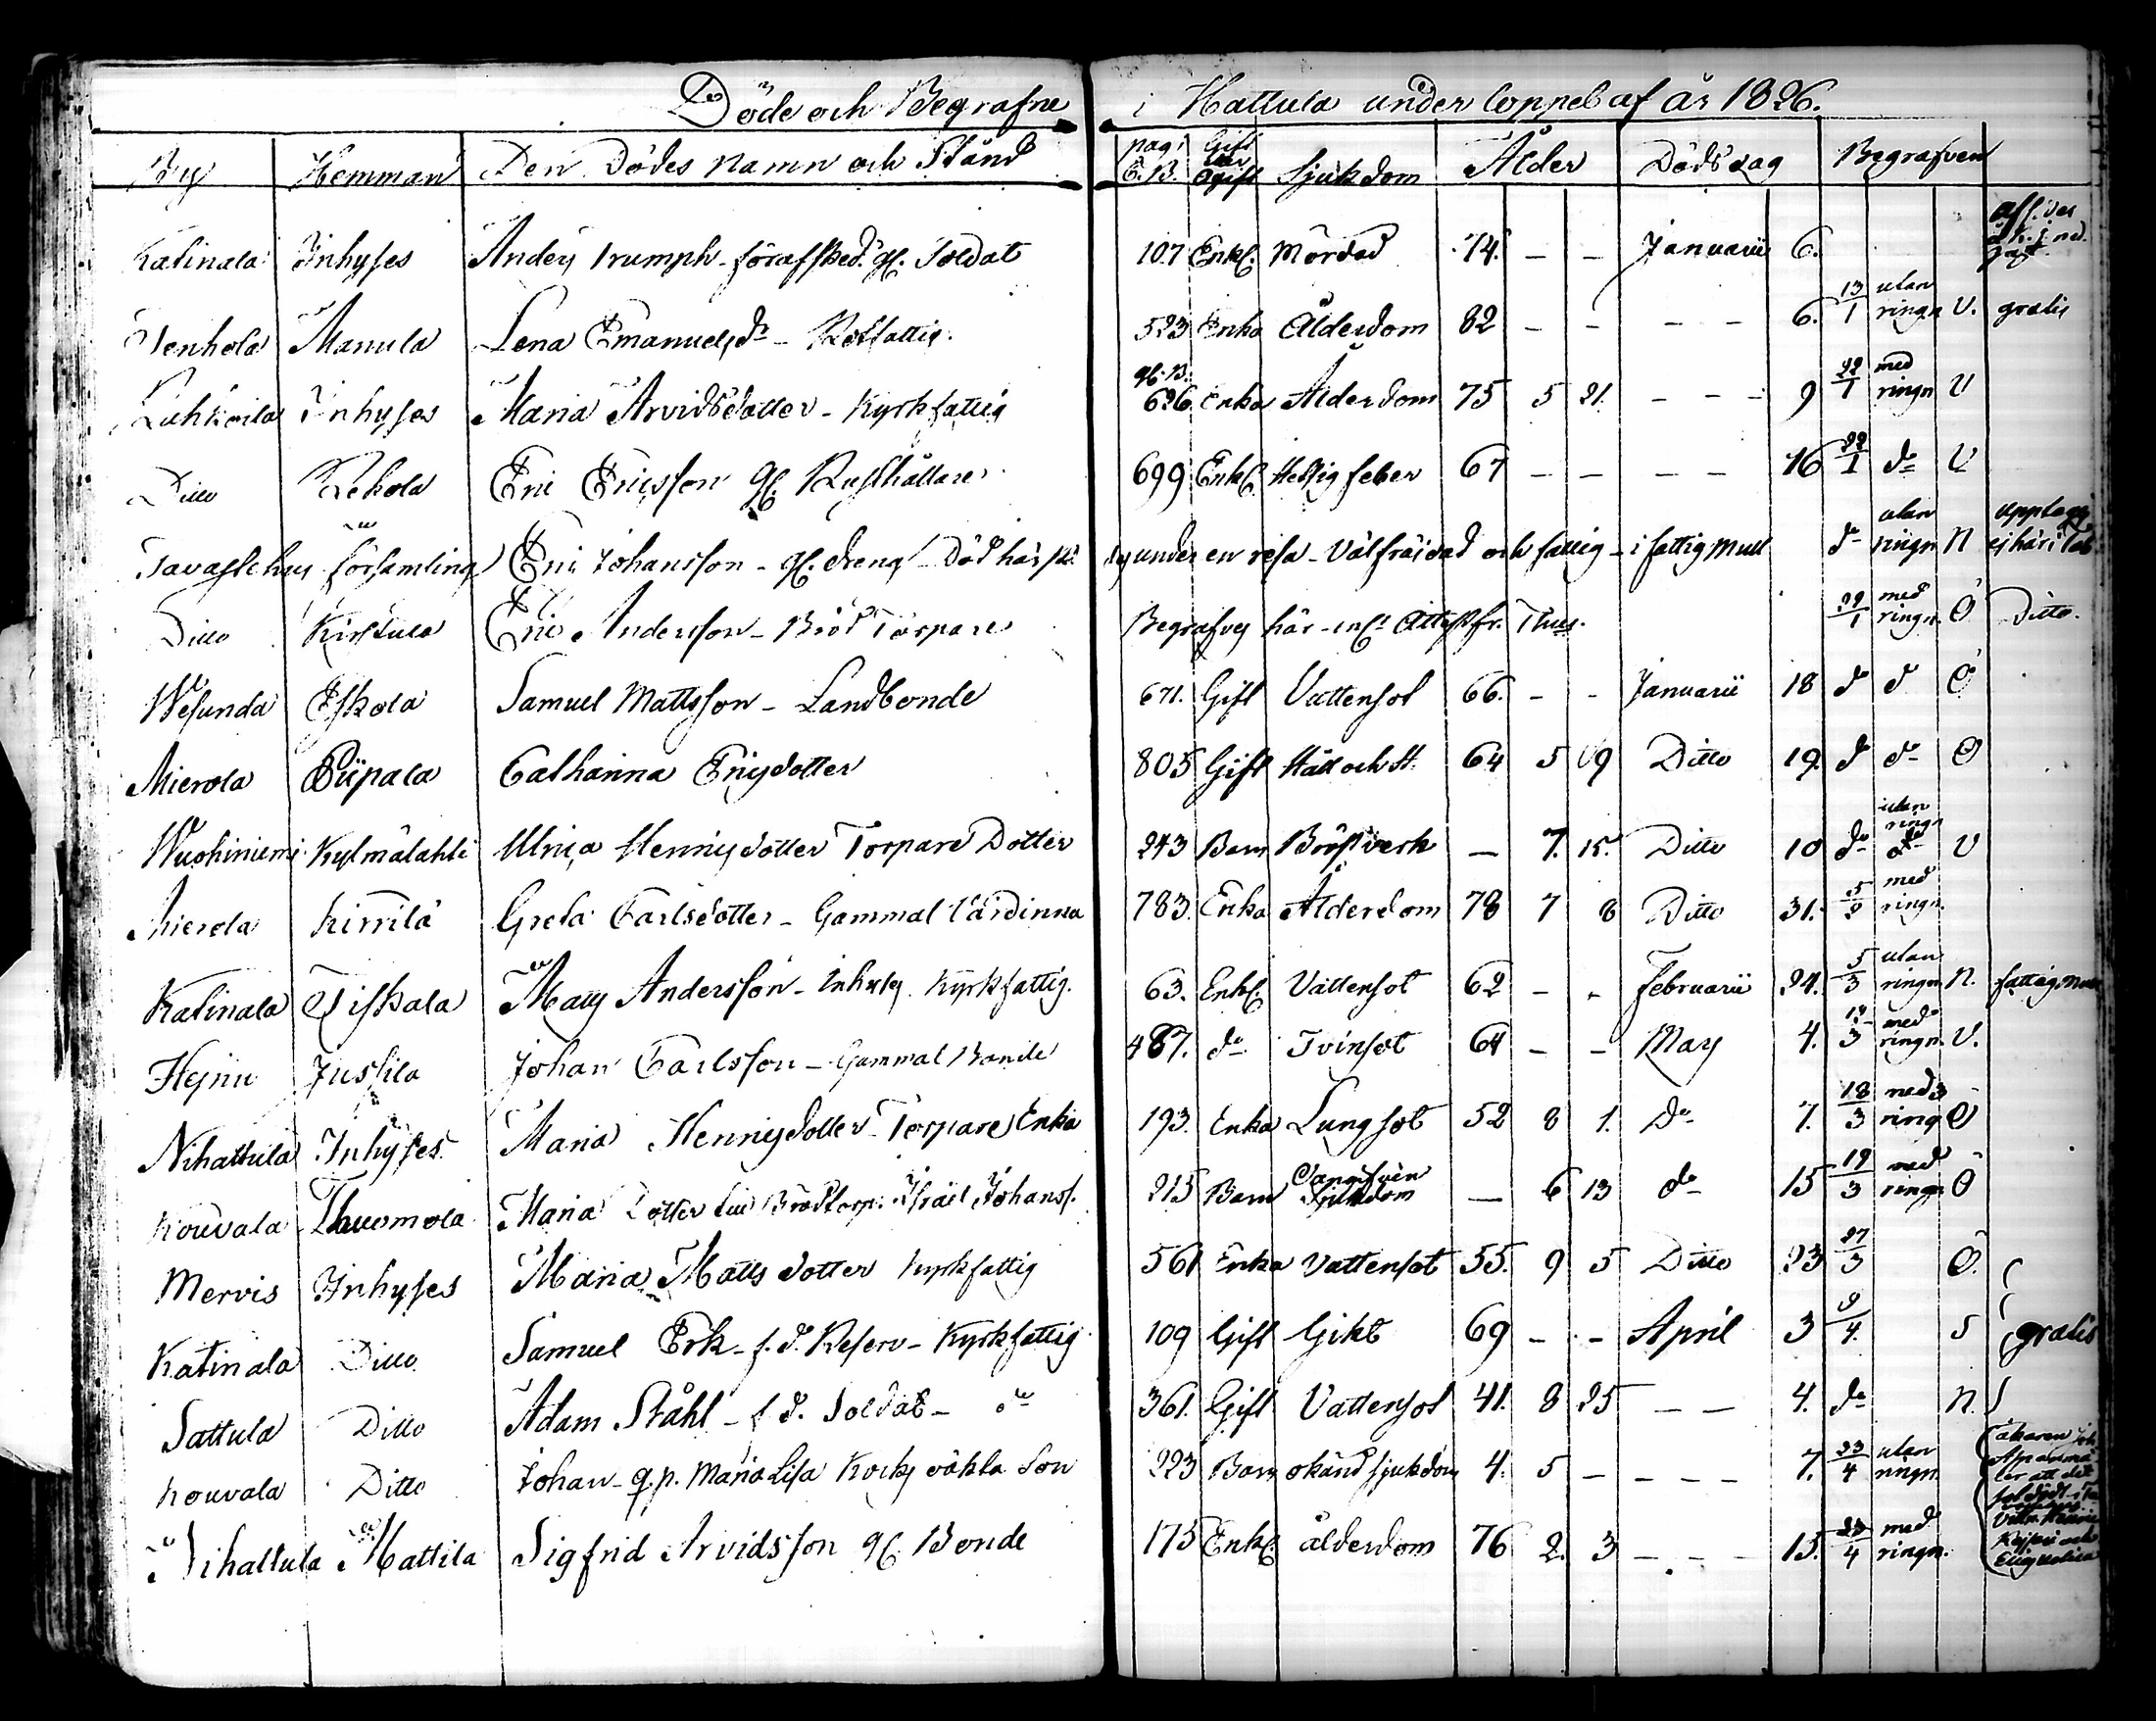 Döde och Begrafne i Hattula under loppet af år 1826.
By Hemman Den Dödes namn och Stånd pag: C.B. Gift eller Ogift Sjukdom Ålder Dödsdag Begrafven
Katinala Inhyses Anders Trumph - förafsked. gl. Soldat 107 Enkl. Mördad 74. - - Januarii 6.
Tenhola Manula Lena Emanuelsdr - Rotfattig. 523 Enka Ålderdom 82 - - - - 6. 13/1 utan ringn. V. gratis
Luhkoila Inhyses Maria Arvidsdotter - Kyrkfattig gl. B. 626. Enka Ålderdom 75 5 21. - - - 9 22/1 med ringn V
Ditto Rekola Eric Ericsson gl. Rusthållare 699 Enkl. Hetsig feber 67 - - - - 16 22/1 do V
Tavastehus församling Eric Johansson - gl. dreng - Död här under en resa - Välfräjdad och fattig - i fattig mull do utan ringn N
Ditto Eric Andersson - Bröd Torpare Begrafven här - enl. Attest fr. Thus. 22/1 med ringn. Ö Ditto.
Wesunda Eskola Samuel Mattsson - Landbonde 671. Gift Vattensot 66. - - Januarii 18 d d Ö
Mierola Piipala Catharina Ericsdotter 805 Gift Håll och St. 64 5 19 Ditto 19. d do Ö
Wuohiniemi Kylmälahti Ulrica Henricsdotter Torpare Dotter 243 Barn Bröstverk - 7. 15. Ditto 10 do utan ringn do V
Mierola Kirrilä Greta Carlsdotter - Gammal Värdinna 783. Enka Ålderdom 78 7 8 Ditto 31. 5/2 med ringn.
Katinala Tiskala Matts Andersson - Inhyses Kyrkfattig. 63. Enkl. Vattensot 62 - - Februarii 24. 5/3 utan ringn N. fattig mull
Hejniu Jussila Johan Carlsson - Gammal Bonde 487. do Tvinsot 64 - - May 4. 12/3 med ringn. V.
Nihattula Inhyses Maria Henricsdotter - Torpare Enka 193. Enka Lungsot 52 8 1. Do 7. 18/3 med ringn Ö
Kouvala Thuomola Maria Dotter till Brödtorp. Israel Johanss. 215 Barn Sjukdom - 6 13 do 15 19/3 med ringn Ö
Mervis Inhyses Maria Mattsdotter Kyrkfattig 561 Enka Vattensot 55. 9 5 Ditto 23 27/3 Ö.
Katinala Ditto Samuel Erk - f.d. Reserv - Kyrkfattig 109 Gift Gikt 69 - - April 3 9/4. S gratis
Sattula Ditto Adam Ståhl - f.d. Soldat - do 361. Gift Vattensot 41. 8 25 - - 4. do N.
Kouvala Ditto Johan - q.p. Maria Lisa Kocks oäkta Son 223 Barn okänd sjukdom 4. 5 - - - - 7. 23/4 utan ringn.
Nihattula Mattila Sigfrid Arvidsson gl. Bonde 175 Enkl. ålderdom 76 2. 3 - - - 15. 23/4 med ringn.